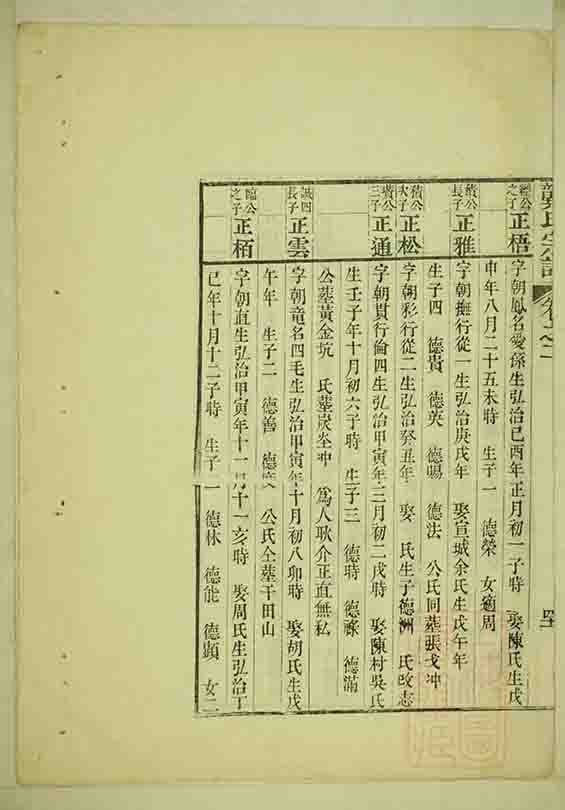 龔氏宗譜 卷之二
經公之子 正梧 字朝鳳名愛孫生弘治己酉年正月初一子時 娶陳氏生戊
申年八月二十五未時 生子一 德榮 女適周
正雅 字朝撫行從一生弘治庚戌年 娶宣城余氏生戊午年
長子
生子四 德貴 德英 德賜 德法 公氏同墓張戈冲
正松 字朝彩行從二生弘治癸丑年 娶 氏生子德洲 氏改志
次子
正通 字朝貫行倫四生弘治甲寅年三月初二戌時 娶陳村吳氏
三子
生壬子年十月初六子時 生子三 德時 德祿 德滿
公墓黃金坑 氏墓炭冲 為人耿介正直無私
誠四長子 正雲 字朝竜名四毛生弘治甲寅年十月初八卯時 娶胡氏生戊
午年 生子二 德善 德 公氏仝墓干田山
臨公之子 正栢 字朝直生弘治甲寅年十一月十一亥時 娶周氏生弘治丁
巳年十月十二子時 生子三 德林 德能 德顯 女二